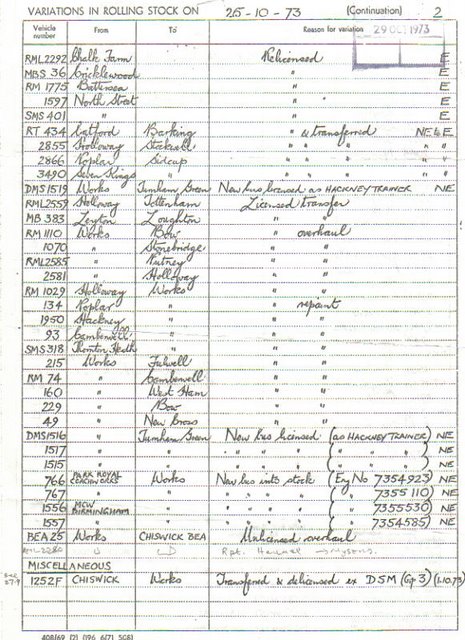 VARIATIONS IN ROLLING STOCK ON 25-10-73 (Continuation) 2
Vehicle number From To Reason for variation 29 OCT 1973
RML2292 Chalk Farm Relicensed E
MBS 36 Cricklewood " E
RM 1775 Battersea " E
1597 North Street " " E
SMS 401 " " E
RT 434 Catford Barking " & transferred NE & E
2855 Holloway Stockwell " " " " "
2866 Poplar Sidcup " " " " "
3490 Seven Kings " " " " " "
DMS1519 Works Turnham Green New bus licensed as HACKNEY TRAINER NE
RML2559 Holloway Tottenham Licensed transfer
MB 383 Leyton Loughton " "
RM 1110 Works Bow " overhaul
1070 " Stonebridge " "
RML2585 " Putney " "
2581 " Holloway " "
RM 1029 Holloway Works " "
134 Poplar " " repaint
1950 Hackney " " "
93 Camberwell " " "
SMS318 Thornton Heath " " "
215 Works Fulwell " "
RM 74 " Camberwell " "
160 " West Ham " "
229 " Bow " "
49 " New Cross " "
DMS1516 " Turnham Green New bus licensed (as HACKNEY TRAINER) NE
1517 " " " " " ( " " " ) NE
1515 " " " " " ( " " " ) NE
766 PARK ROYAL COACHWORKS Works New bus into stock (Eng No 7354923) NE
767 " " " " " " ( " 7355110) NE
1556 MCW BIRMINGHAM " " " " " ( " 7355530) NE
1557 " " " " " " ( " 7354585) NE
BEA 25 Works CHISWICK BEA Unlicensed overhaul
RML2280 Rpt.
MISCELLANEOUS
see 27.9 1252F CHISWICK Works Transferred & delicensed ex DSM (Gp 3) (1.10.73)
408/69 (2) (196 6/71 SG8)